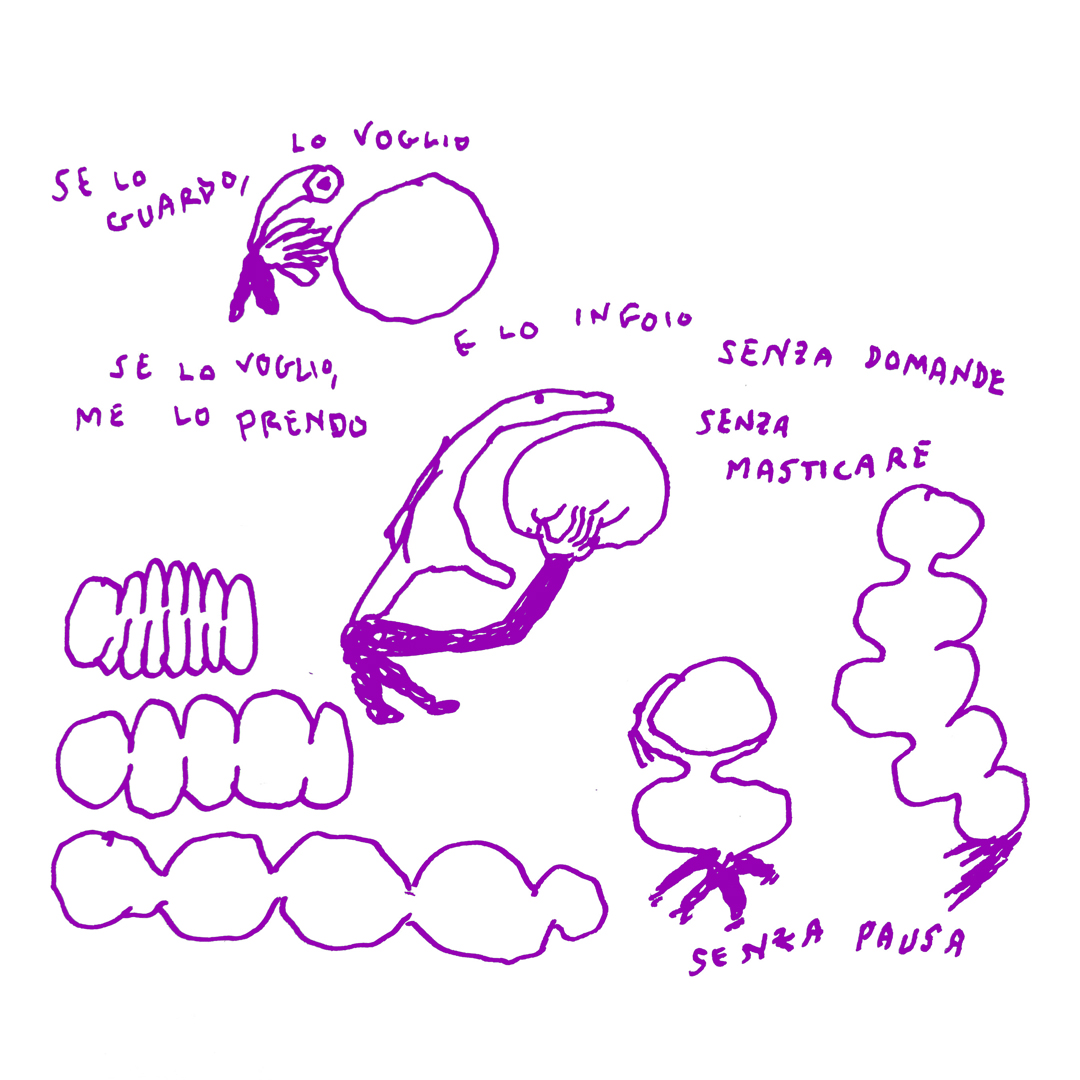 SE LO
GUARDO,
LO VOGLIO
SE LO VOGLIO,
ME LO PRENDO
E LO INGOIO
SENZA DOMANDE
SENZA
MASTICARE
SENZA PAUSA